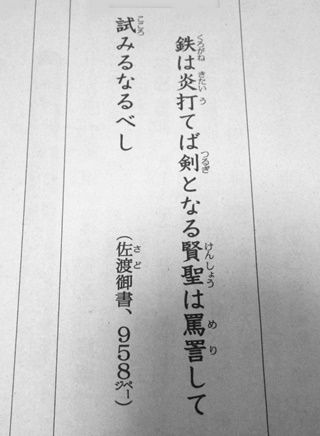 鉄は炎打てば剣となる賢聖は罵詈して
試みるなるべし
（佐渡御書、958ページ）